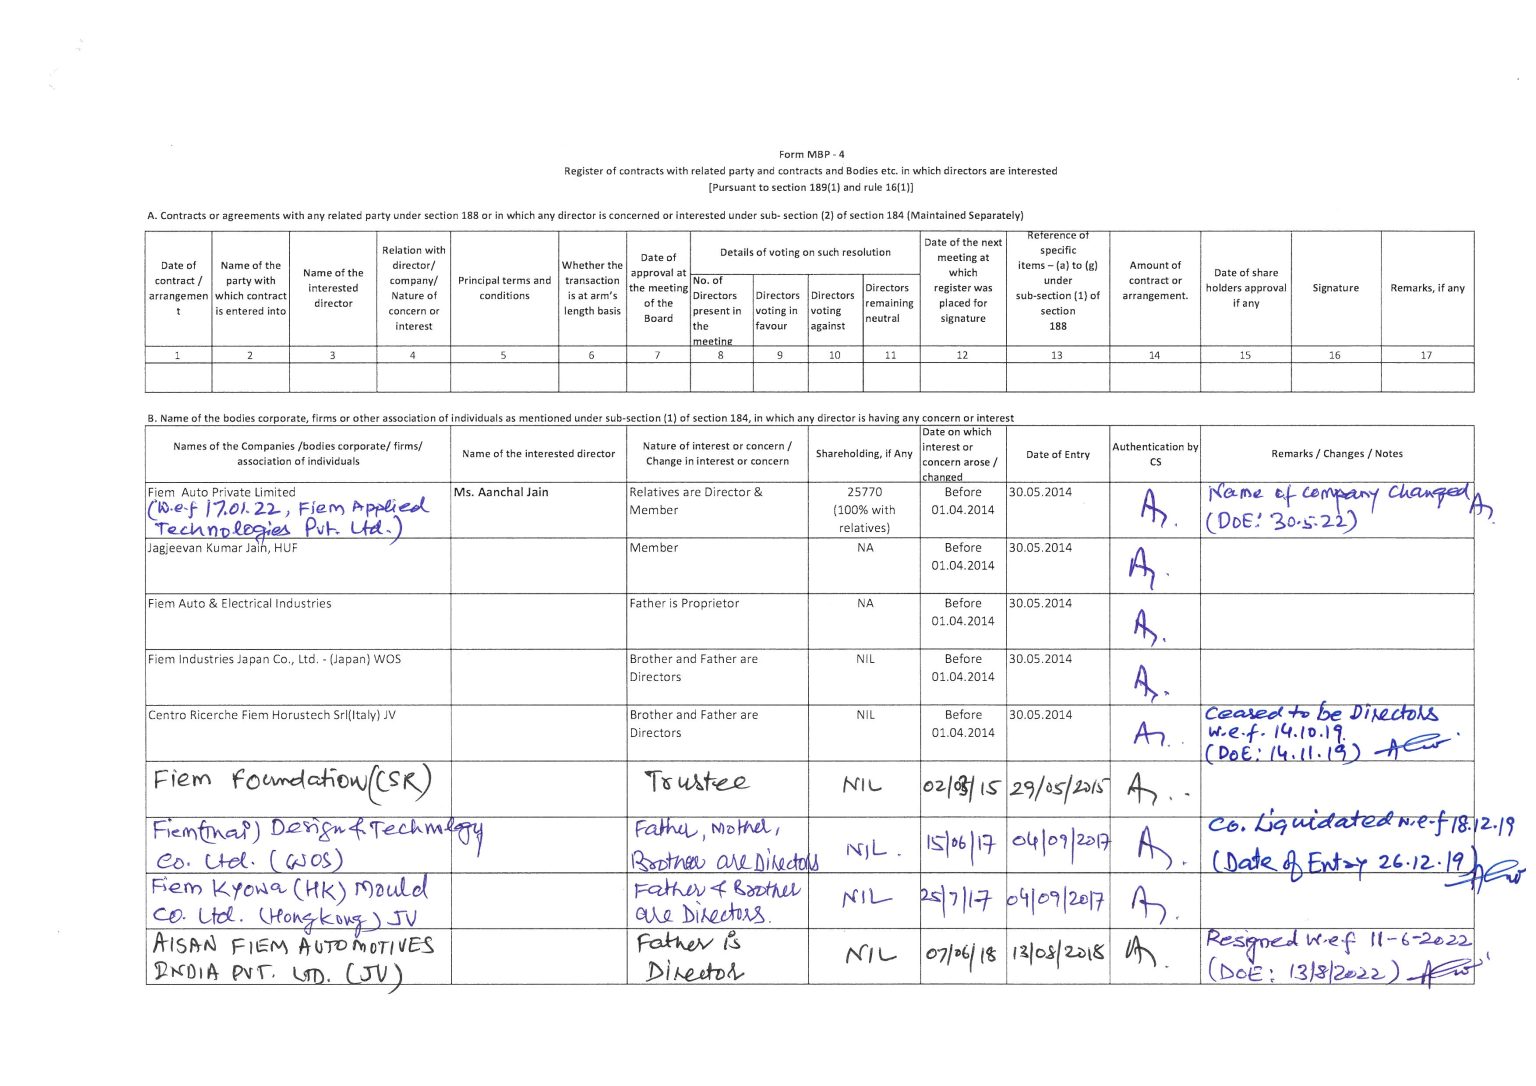 Form MBP - 4
Register of contracts with related party and contracts and Bodies etc. in which directors are interested
[Pursuant to section 189(1) and rule 16(1)]
A. Contracts or agreements with any related party under section 188 or in which any director is concerned or interested under sub- section (2) of section 184 (Maintained Separately)
Date of
contract /
arrangemen
t
Name of the
party with
which contract
is entered into
Name of the
interested
director
Relation with
director/
company/
Nature of
concern or
interest
Principal terms and
conditions
Whether the
transaction
is at arm's
length basis
Date of
approval at
the meeting
of the
Board
Details of voting on such resolution
No. of
Directors
present in
the
meeting
Directors
voting in
favour
Directors
voting
against
Directors
remaining
neutral
Date of the next
meeting at
which
register was
placed for
signature
Reference of
specific
items – (a) to (g)
under
sub-section (1) of
section
188
Amount of
contract or
arrangement.
Date of share
holders approval
if any
Signature
Remarks, if any
1 2 3 4 5 6 7 8 9 10 11 12 13 14 15 16 17
B. Name of the bodies corporate, firms or other association of individuals as mentioned under sub-section (1) of section 184, in which any director is having any concern or interest
Names of the Companies /bodies corporate/ firms/
association of individuals
Name of the interested director
Nature of interest or concern /
Change in interest or concern
Shareholding, if Any
Date on which
interest or
concern arose /
changed
Date of Entry
Authentication by
CS
Remarks / Changes / Notes
Fiem Auto Private Limited
(W.e.f 17.01.22, Fiem Applied
Technologies Pvt. Ltd.)
Ms. Aanchal Jain
Relatives are Director &
Member
25770
(100% with
relatives)
Before
01.04.2014
30.05.2014
Name of company changed
(DoE: 30.5.22)
Jagjeevan Kumar Jain, HUF
Member
NA
Before
01.04.2014
30.05.2014
Fiem Auto & Electrical Industries
Father is Proprietor
NA
Before
01.04.2014
30.05.2014
Fiem Industries Japan Co., Ltd. - (Japan) WOS
Brother and Father are
Directors
NIL
Before
01.04.2014
30.05.2014
Centro Ricerche Fiem Horustech Srl(Italy) JV
Brother and Father are
Directors
NIL
Before
01.04.2014
30.05.2014
Ceased to be Directors
w.e.f. 14.10.19
(DoE: 14.11.19)
Fiem Foundation (CSR)
Trustee
NIL
02/03/15
29/05/2015
Design & Technology
Co. Ltd. (WOS)
Father, Mother,
Brother are Directors
NIL.
15/06/17
04/09/2017
Co. Liquidated w.e.f 18.12.19
(Date of Entry 26.12.19)
Fiem Kyowa (HK) Mould
Co. Ltd. (Hongkong) JV
Father & Brother
are Directors.
NIL
25/7/17
04/09/2017
AISAN FIEM AUTOMOTIVES
INDIA PVT. LTD. (JV)
Father is
Director
NIL
07/06/18
13/08/2018
Resigned w.e.f 11-6-2022
(DoE: 13/8/2022)